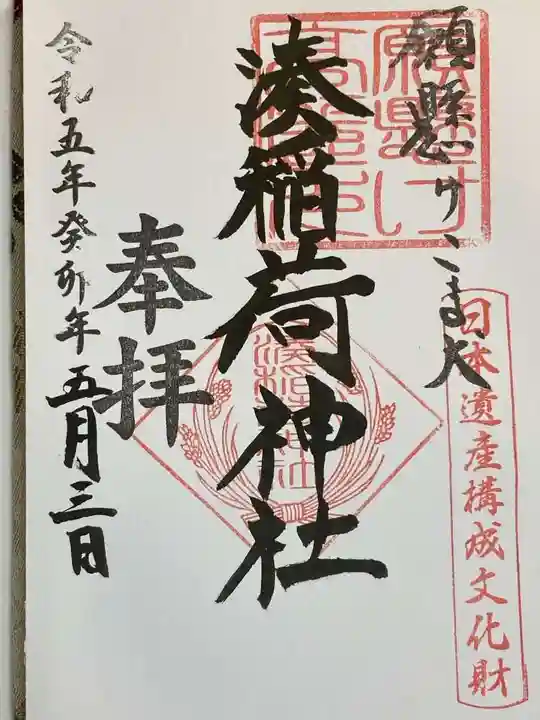 願懸けこま犬
日本遺産構成文化財
湊稲荷神社
湊稲荷神社
奉拝
令和五年癸卯年五月三日